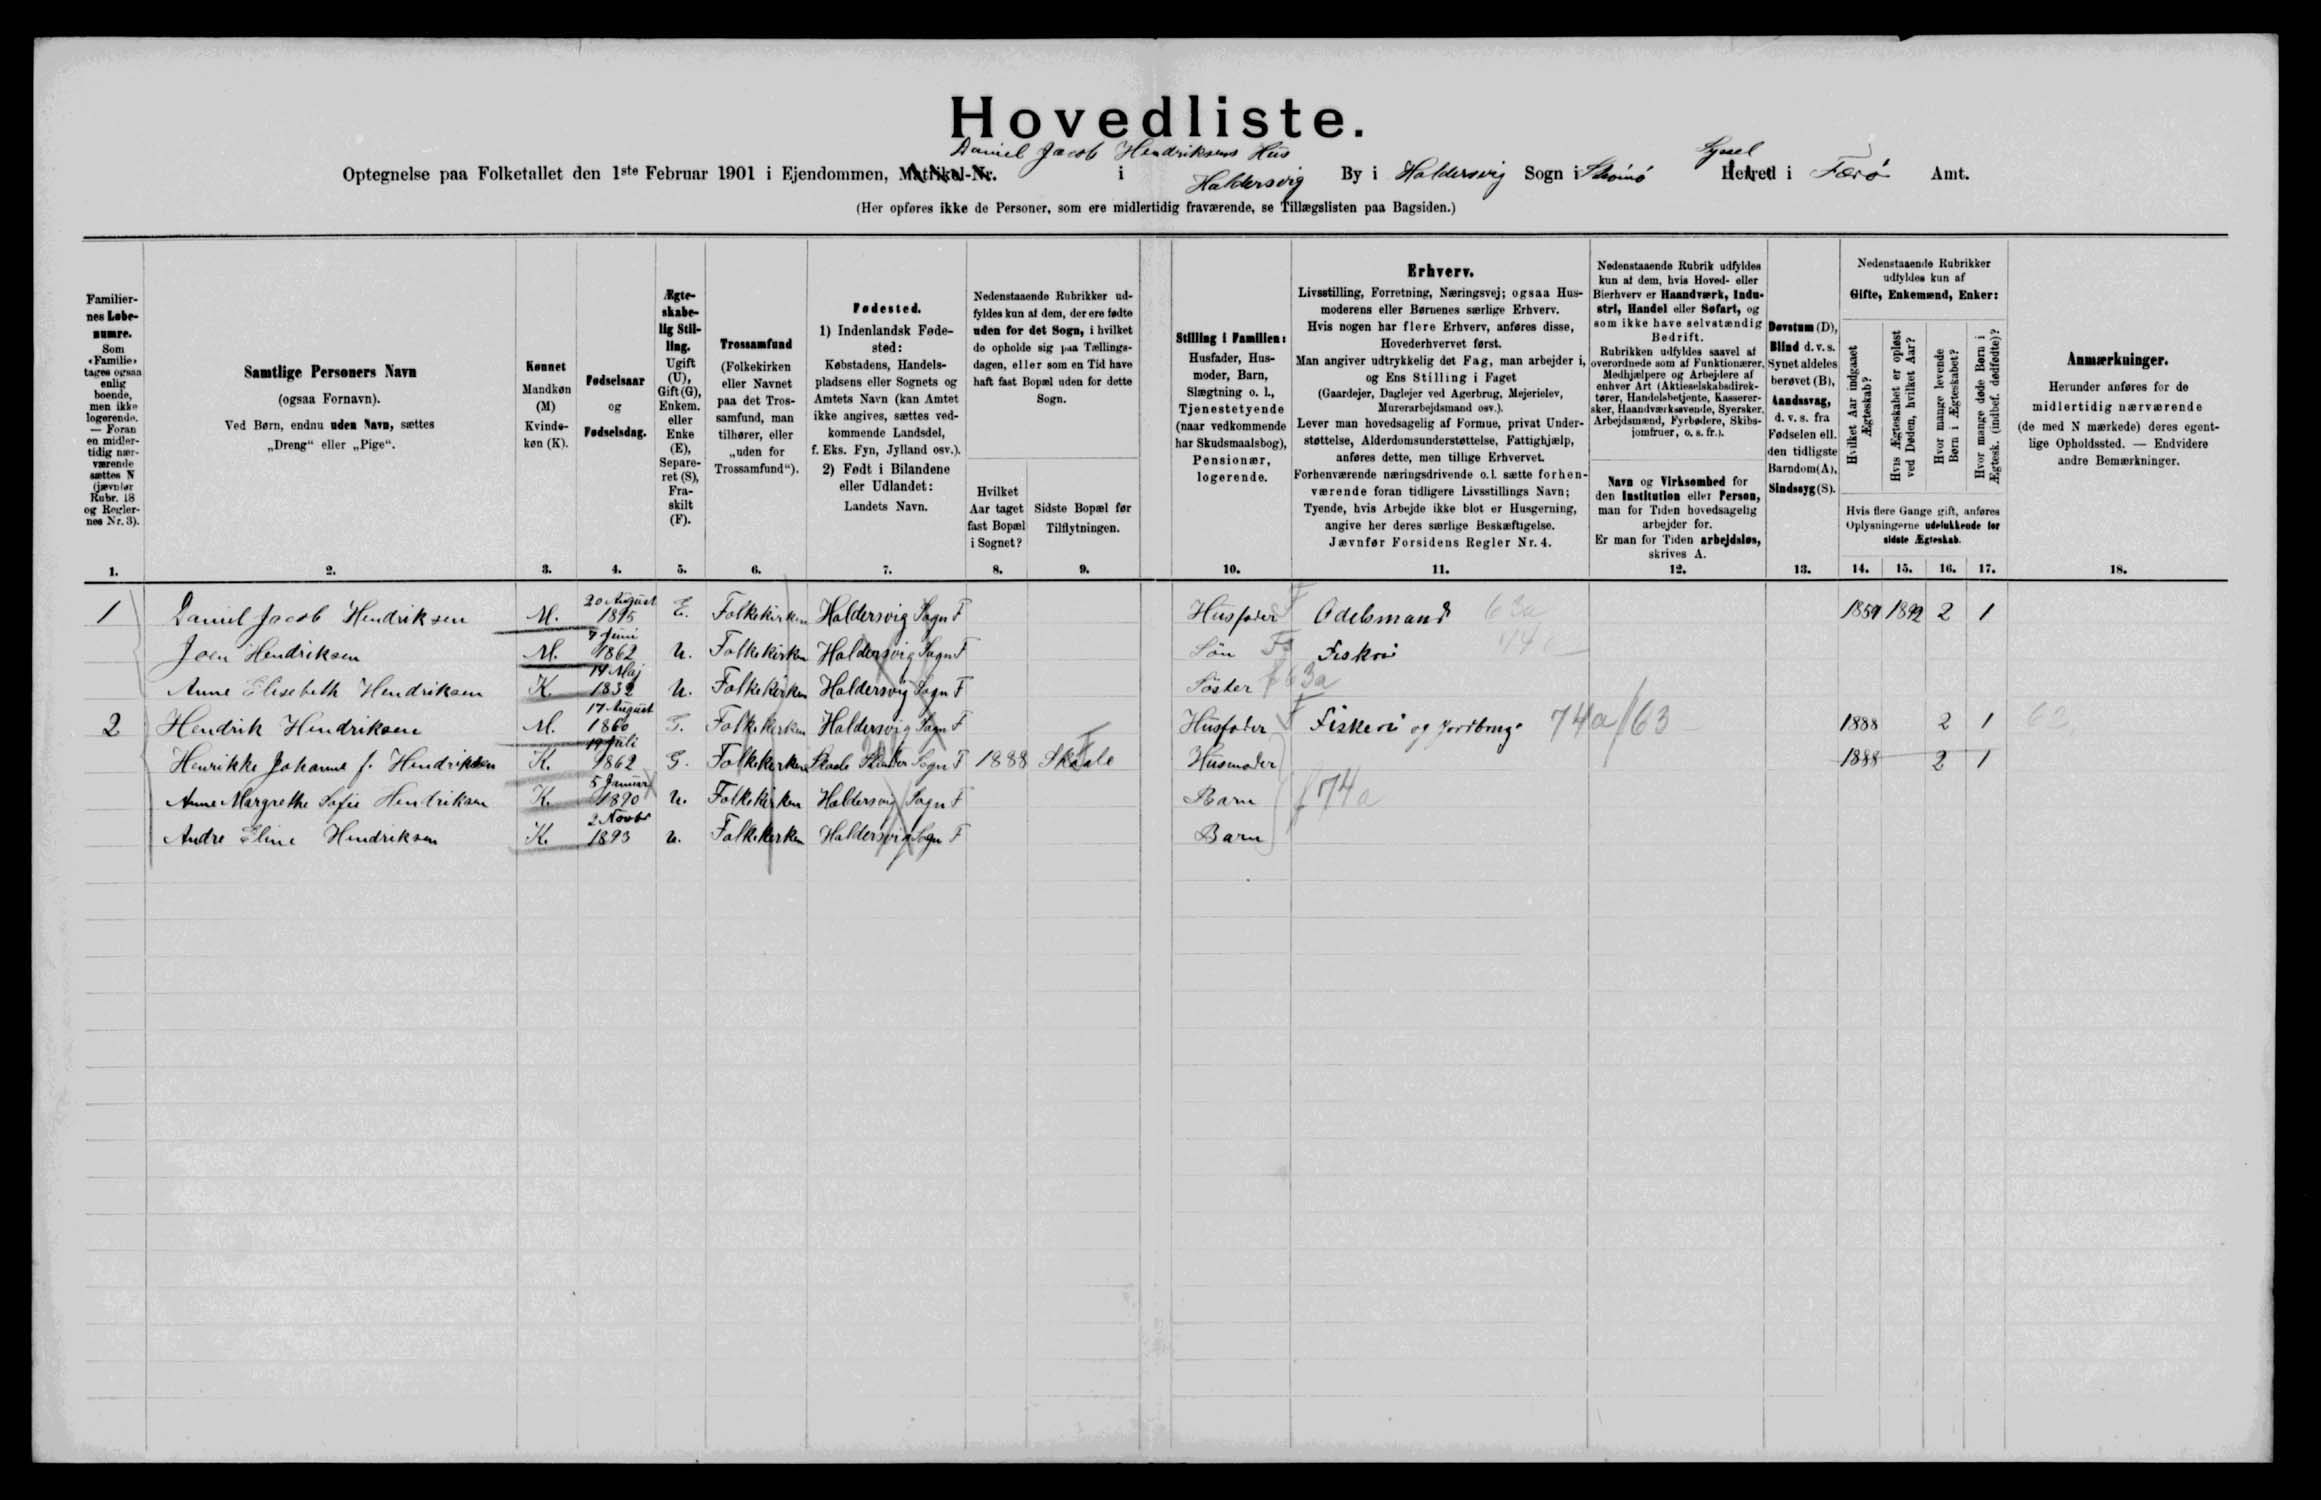 Hovedliste.
Daniel Jacob Hendriksens Hus
Sysel
Optegnelse paa Folketallet den 1ste Februar 1901 i Ejendommen, Matrikel-Nr. i Haldersvig By i Haldersvig Sogn i Strömö Herred i Færø Amt.
(Her opføres ikke de Personer, som ere midlertidig fraværende, se Tillægslisten paa Bagsiden.)
Familier-
nes Løbe-
numre.
Som
«Familie»
tages ogsaa
enlig
boende,
men ikke
logerende.
— Foran
en midler-
tidig nær-
værende
sættes N
(jævnfør
Rubr. 18
og Regler-
nes Nr. 3).
1.
Samtlige Personers Navn
(ogsaa Fornavn).
Ved Børn, endnu uden Navn, sættes
„Dreng“ eller „Pige“.
2.
Kønnet
Mandkøn
(M)
Kvinde-
køn (K).
3.
Fødselsaar
og
Fødselsdag.
4.
Ægte-
skabe-
lig Stil-
ling.
Ugift
(U),
Gift (G),
Enkem.
eller
Enke
(E),
Separe-
ret (S),
Fra-
skilt
(F).
5.
Trossamfund
(Folkekirken
eller Navnet
paa det Tros-
samfund, man
tilhører, eller
„uden for
Trossamfund“).
6.
Fødested.
1) Indenlandsk Føde-
sted:
Købstadens, Handels-
pladsens eller Sognets og
Amtets Navn (kan Amtet
ikke angives, sættes ved-
kommende Landsdel,
f. Eks. Fyn, Jylland osv.).
2) Født i Bilandene
eller Udlandet:
Landets Navn.
7.
Nedenstaaende Rubrikker ud-
fyldes kun af dem, der ere fødte
uden for det Sogn, i hvilket
de opholde sig paa Tællings-
dagen, eller som en Tid have
haft fast Bopæl uden for dette
Sogn.
Hvilket
Aar taget
fast Bopæl
i Sognet?
8.
Sidste Bopæl før
Tilflytningen.
9.
Stilling i Familien:
Husfader, Hus-
moder, Barn,
Slægtning o. l.,
Tjenestetyende
(naar vedkommende
har Skudsmaalsbog),
Pensionær,
logerende.
10.
Erhverv.
Livsstilling, Forretning, Næringsvej; ogsaa Hus-
moderens eller Børnenes særlige Erhverv.
Hvis nogen har flere Erhverv, anføres disse,
Hovederhvervet først.
Man angiver udtrykkelig det Fag, man arbejder i,
og Ens Stilling i Faget
(Gaardejer, Daglejer ved Agerbrug, Mejerielev,
Murerarbejdsmand osv.).
Lever man hovedsagelig af Formue, privat Under-
støttelse, Alderdomsunderstøttelse, Fattighjælp,
anføres dette, men tillige Erhvervet.
Forhenværende næringsdrivende o. l. sætte forhen-
værende foran tidligere Livsstillings Navn;
Tyende, hvis Arbejde ikke blot er Husgerning,
angive her deres særlige Beskæftigelse.
Jævnfør Forsidens Regler Nr. 4.
11.
Nedenstaaende Rubrik udfyldes
kun af dem, hvis Hoved- eller
Bierhverv er Haandværk, Indu-
stri, Handel eller Søfart, og
som ikke have selvstændig
Bedrift.
Rubrikken udfyldes saavel af
overordnede som af Funktionærer,
Medhjælpere og Arbejdere af
enhver Art (Aktieselskabsdirek-
tører, Handelsbetjente, Kasserer-
sker, Haandværksvende, Syersker,
Arbejdsmænd, Fyrbødere, Skibs-
jomfruer, o. s. fr.).
Navn og Virksomhed for
den Institution eller Person,
man for Tiden hovedsagelig
arbejder for.
Er man for Tiden arbejdsløs,
skrives A.
12.
Døvstum (D),
Blind d. v. s.
Synet aldeles
berøvet (B),
Aandssvag,
d. v. s. fra
Fødselen ell.
den tidligste
Barndom (A),
Sindssyg (S).
13.
Nedenstaaende Rubrikker
udfyldes kun af
Gifte, Enkemænd, Enker:
Hvilket Aar indgaaet
Ægteskab?
Hvis Ægteskabet er opløst
ved Døden, hvilket Aar?
Hvor mange levende
Børn i Ægteskabet?
Hvor mange døde Børn i
Ægtesk. (indbef. dødfødte)?
Hvis flere Gange gift, anføres
Oplysningerne udelukkende for
sidste Ægteskab.
14. 15. 16. 17.
Anmærkninger.
Herunder anføres for de
midlertidig nærværende
(de med N mærkede) deres egent-
lige Opholdssted. — Endvidere
andre Bemærkninger.
18.
1 Daniel Jacob Hendriksen M. 20 August E. Folkekirken Haldersvig Sogn F Husfader Odelsmand 63a 1892 2 1
Joen Hendriksen M. 7 Juni 1862 U. Folkekirken Haldersvig Sogn F Sön Fiskeri
Anne Elisebeth Hendriksen K. 14 Maj 1832 U. Folkekirken Haldersvig Sogn F Söster f 63a
2 Hendrik Hendriksen M. 17 August 1860 G. Folkekirken Haldersvig Sogn F Husfader Fiskeri og Jordbrug 74a/63 1888 2 1 63
Henrikke Johanne f. Hendriksen K. 19 Juli 1862 G. Folkekirken Skaale Sogn F 1888 Skaale Husmoder 1888 2 1
Anne Margrethe Sofie Hendriksen K. 5 Januar 1890 U. Folkekirken Haldersvig Sogn F Barn f 74a
Andre Eline Hendriksen K. 2 Novbr 1893 U. Folkekirken Haldersvig Sogn F Barn